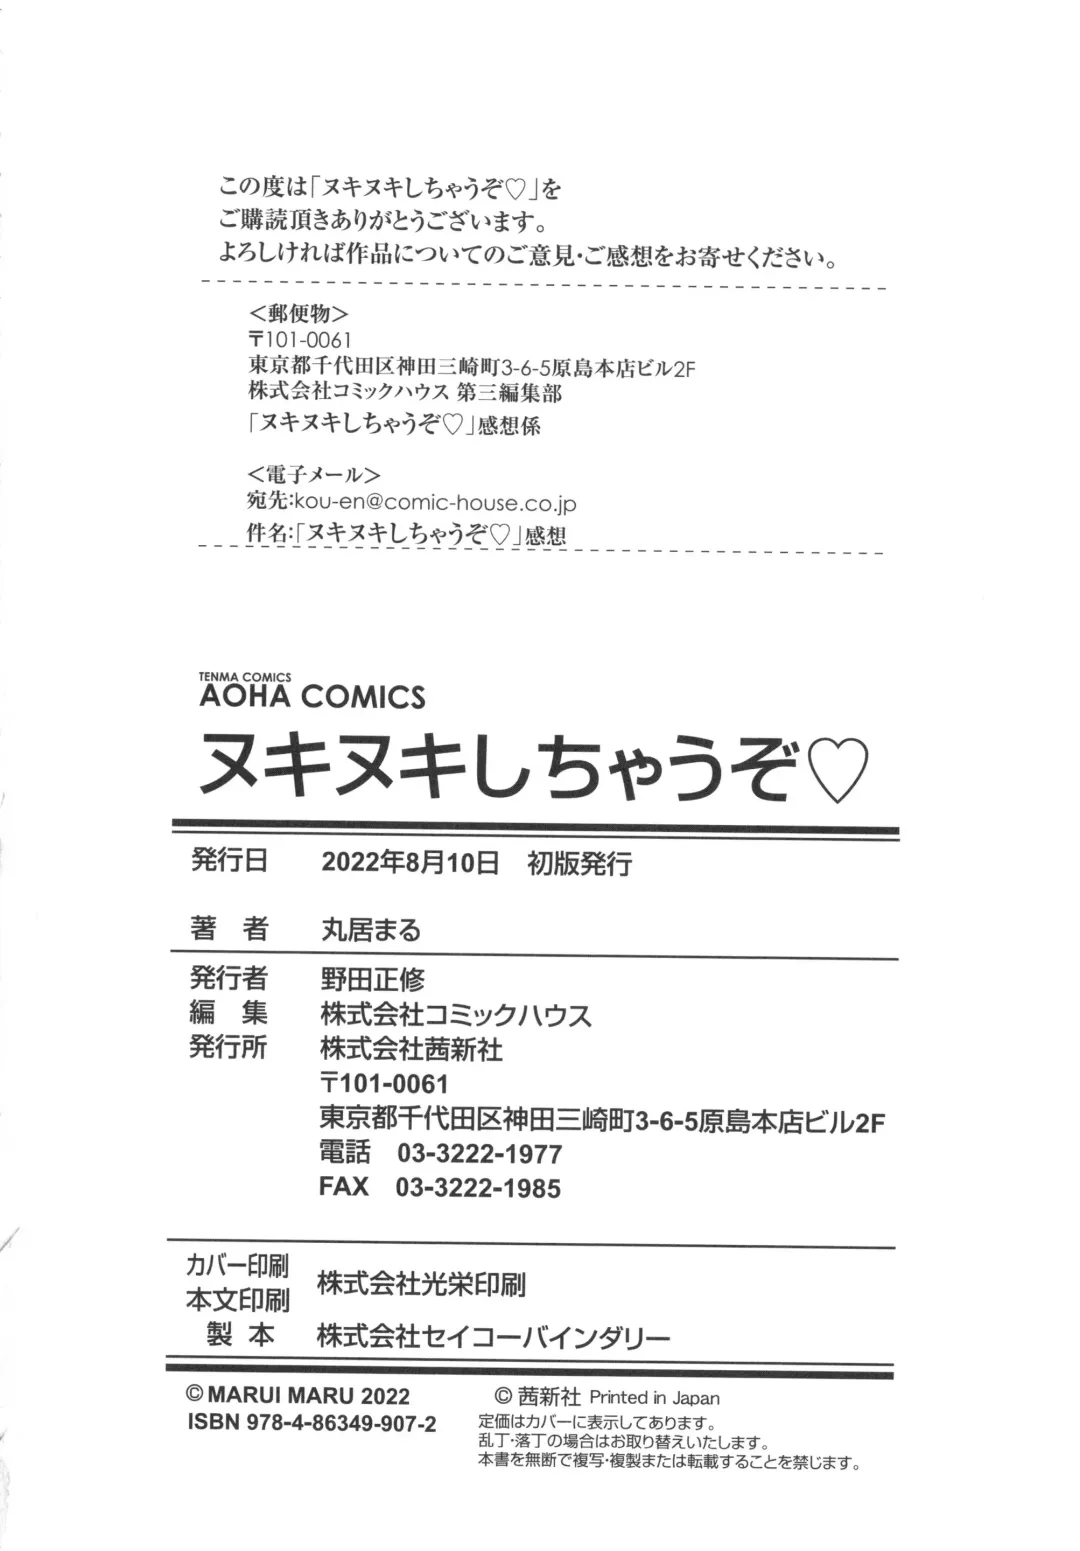 この度は「ヌキヌキしちゃうぞ♡」を
ご購読頂きありがとうございます。
よろしければ作品についてのご意見・ご感想をお寄せください。
＜郵便物＞
〒101-0061
東京都千代田区神田三崎町3-6-5原島本店ビル2F
株式会社コミックハウス 第三編集部
「ヌキヌキしちゃうぞ♡」感想係
＜電子メール＞
宛先:kou-en@comic-house.co.jp
件名:「ヌキヌキしちゃうぞ♡」感想
TENMA COMICS
AOHA COMICS
ヌキヌキしちゃうぞ♡
発行日 2022年8月10日 初版発行
著 者 丸居まる
発行者 野田正修
編 集 株式会社コミックハウス
発行所 株式会社茜新社
〒101-0061
東京都千代田区神田三崎町3-6-5原島本店ビル2F
電話 03-3222-1977
FAX 03-3222-1985
カバー印刷
本文印刷
株式会社光栄印刷
製 本 株式会社セイコーバインダリー
© MARUI MARU 2022
ISBN 978-4-86349-907-2
© 茜新社 Printed in Japan
定価はカバーに表示してあります。
乱丁・落丁の場合はお取り替えいたします。
本書を無断で複写・複製または転載することを禁じます。